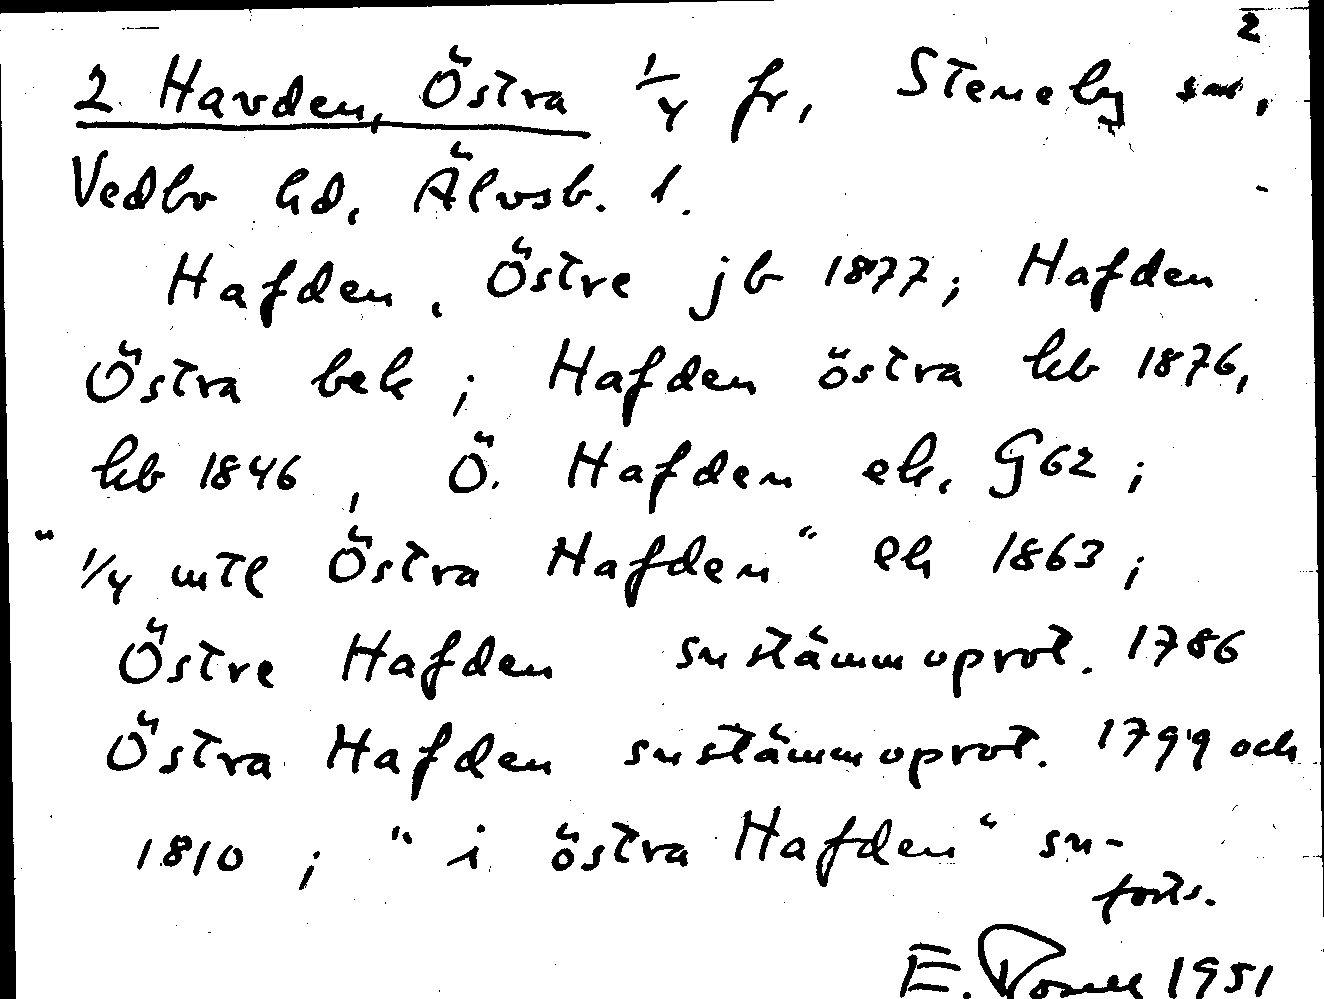 2
2 Havden, Östra 1/4 fr, Steneby sn,
Vedbo hd, Älvsb. l.
Hafden, Östre jb 1877; Hafden
Östra bek; Hafden östra hb 1876,
hb 1846, Ö. Hafden ek, G62;
"1/4 mtl Östra Hafden" ek 1863;
Östre Hafden snstämmoprot. 1786
Östra Hafden snstämmoprot. 1799 och
1810; "i östra Hafden" sn-
forts.
E. 1951